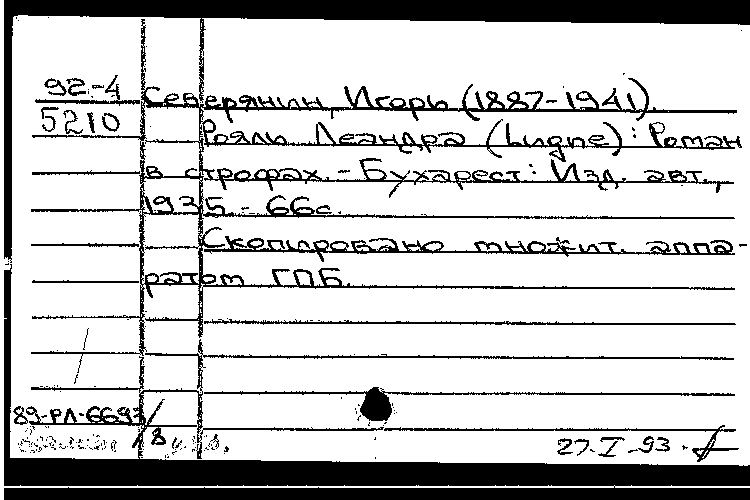 92-4 Северянин, Игорь (1887-1941).
5210 Рояль Леандра (Lugne): Роман
в строфах. - Бухарест: Изд. авт.,
1935. - 66с.
Скопировано множит. аппа-
ратом ГПБ.
89-РЛ-6693/
8
27.I.93.